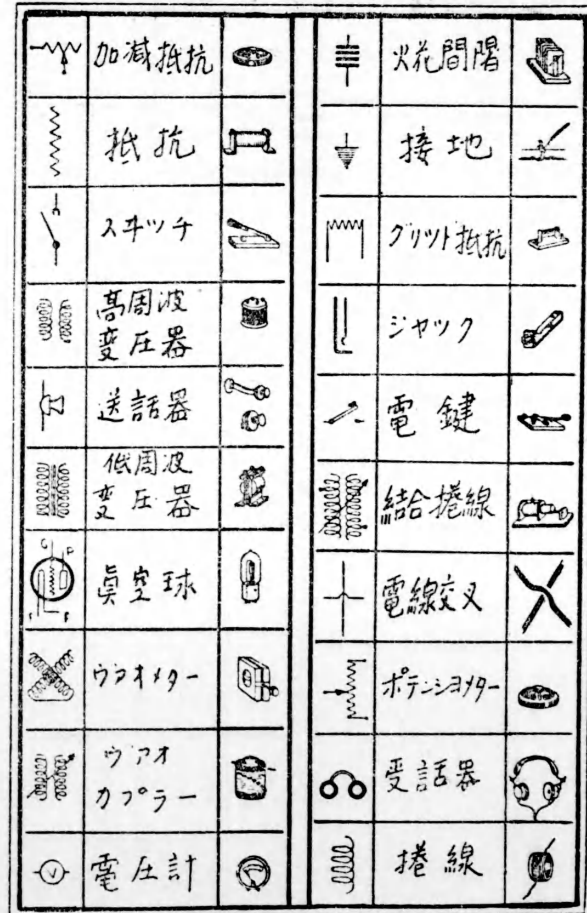 加減抵抗
抵抗
スヰッチ
高周波
変圧器
送話器
低周波
変圧器
G P
F F
眞空球
ヴァオメター
ヴァオ
カプラー
V
電圧計
火花間隙
接地
グリット抵抗
ジャック
電鍵
結合捲線
電線交叉
ポテンショメター
受話器
捲線